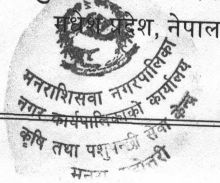 मधेश प्रदेश, नेपाल
मनराशिसवा नगरपालिका
नगर कार्यपालिकाको कार्यालय
कृषि तथा पशुपन्छी सेवा केन्द्र